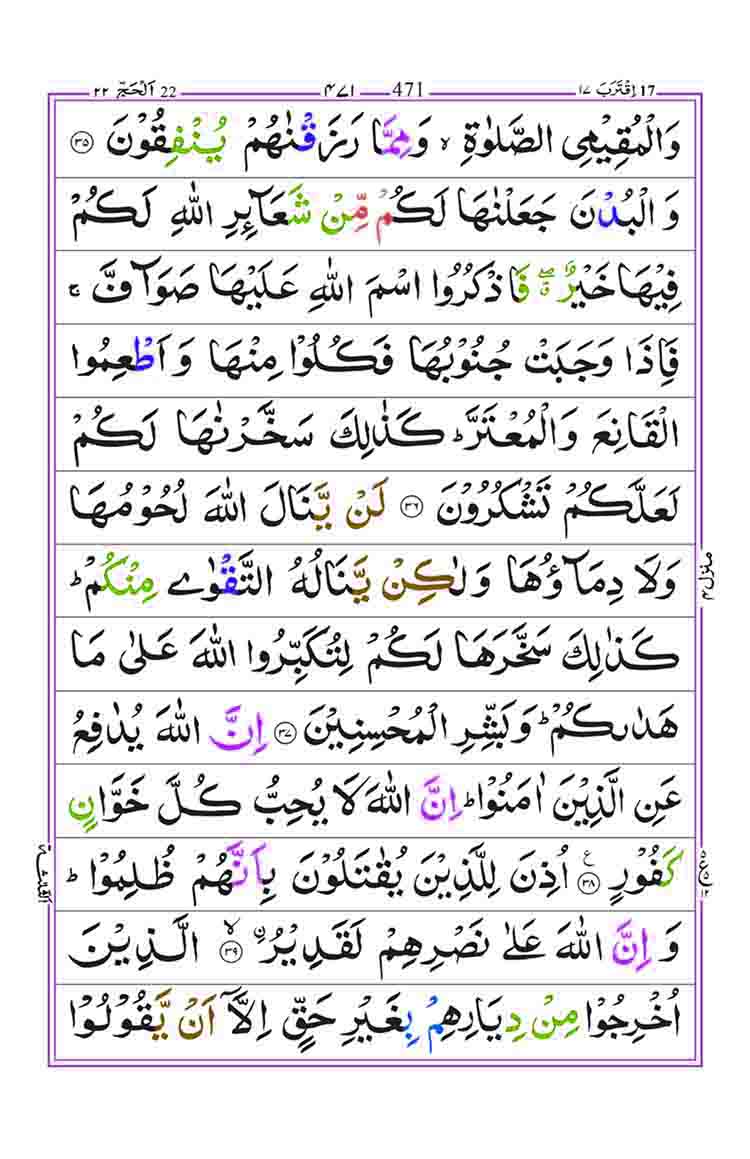 ٢٢ اَلْحَجّ 22 ٤٧١ 471 اِقْتَرَبَ ١٧ 17
وَالْمُقِيْمِی الصَّلٰوةِ ۙ وَمِمَّا رَزَقْنٰهُمْ يُنْفِقُوْنَ ﴿٣٥﴾
وَ الْبُدْنَ جَعَلْنٰهَا لَكُمْ مِّنْ شَعَآئِرِ اللّٰهِ لَكُمْ
فِيْهَا خَيْرٌ ۖۗ فَاذْكُرُوا اسْمَ اللّٰهِ عَلَيْهَا صَوَآفَّ ۚ
فَاِذَا وَجَبَتْ جُنُوْبُهَا فَكُلُوْا مِنْهَا وَ اَطْعِمُوا
الْقَانِعَ وَالْمُعْتَرَّ ؕ كَذٰلِكَ سَخَّرْنٰهَا لَكُمْ
لَعَلَّكُمْ تَشْكُرُوْنَ ﴿٣٦﴾ لَنْ يَّنَالَ اللّٰهَ لُحُوْمُهَا
وَلَا دِمَآؤُهَا وَلٰكِنْ يَّنَالُهُ التَّقْوٰى مِنْكُمْ ؕ
كَذٰلِكَ سَخَّرَهَا لَكُمْ لِتُكَبِّرُوا اللّٰهَ عَلٰى مَا
هَدٰٮكُمْ ؕ وَبَشِّرِ الْمُحْسِنِيْنَ ﴿٣٧﴾ اِنَّ اللّٰهَ يُدٰفِعُ
عَنِ الَّذِيْنَ اٰمَنُوْا ؕ اِنَّ اللّٰهَ لَا يُحِبُّ كُلَّ خَوَّانٍ
كَفُوْرٍ ﴿٣٨﴾ ع اُذِنَ لِلَّذِيْنَ يُقٰتَلُوْنَ بِاَنَّهُمْ ظُلِمُوْا ؕ
وَ اِنَّ اللّٰهَ عَلٰى نَصْرِهِمْ لَقَدِيْرُ ۨ ﴿٣٩﴾ ۙ الَّذِيْنَ
اُخْرِجُوْا مِنْ دِيَارِهِمْ بِغَيْرِ حَقٍّ اِلَّاۤ اَنْ يَّقُوْلُوْا
منزل ٤